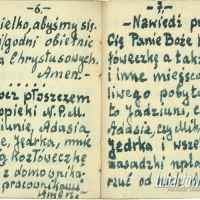 -6.-
ielko, abyśmy się
i godni obietnic
a Chrystusowych.
Amen.-
ocz płaszczem
opieki N.P.M.
iunie, Adasia,
e, Jędrka, mnie
ą Kozłóweczkę
z domownika-
pracownikami
Amen.-
-7.-
-Nawiedź pr
Cię Panie Boże K
łóweczkę a takż
i inne miejsco
liwego pobyto
to Jadziuni, C
Adasia,
Jędrka i wszel
zasadzki npla
rzuć od